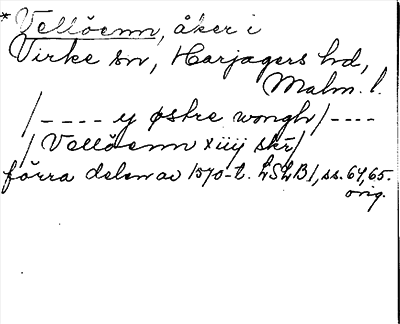 *Vellöenn, åker i
Virke sn, Harjagers hd,
Malm. l.
/---- y østre wongh/----
/Vellöenn xiiij skr/
förra delen av 1570-t. LSLB1, ss. 64, 65.
orig.